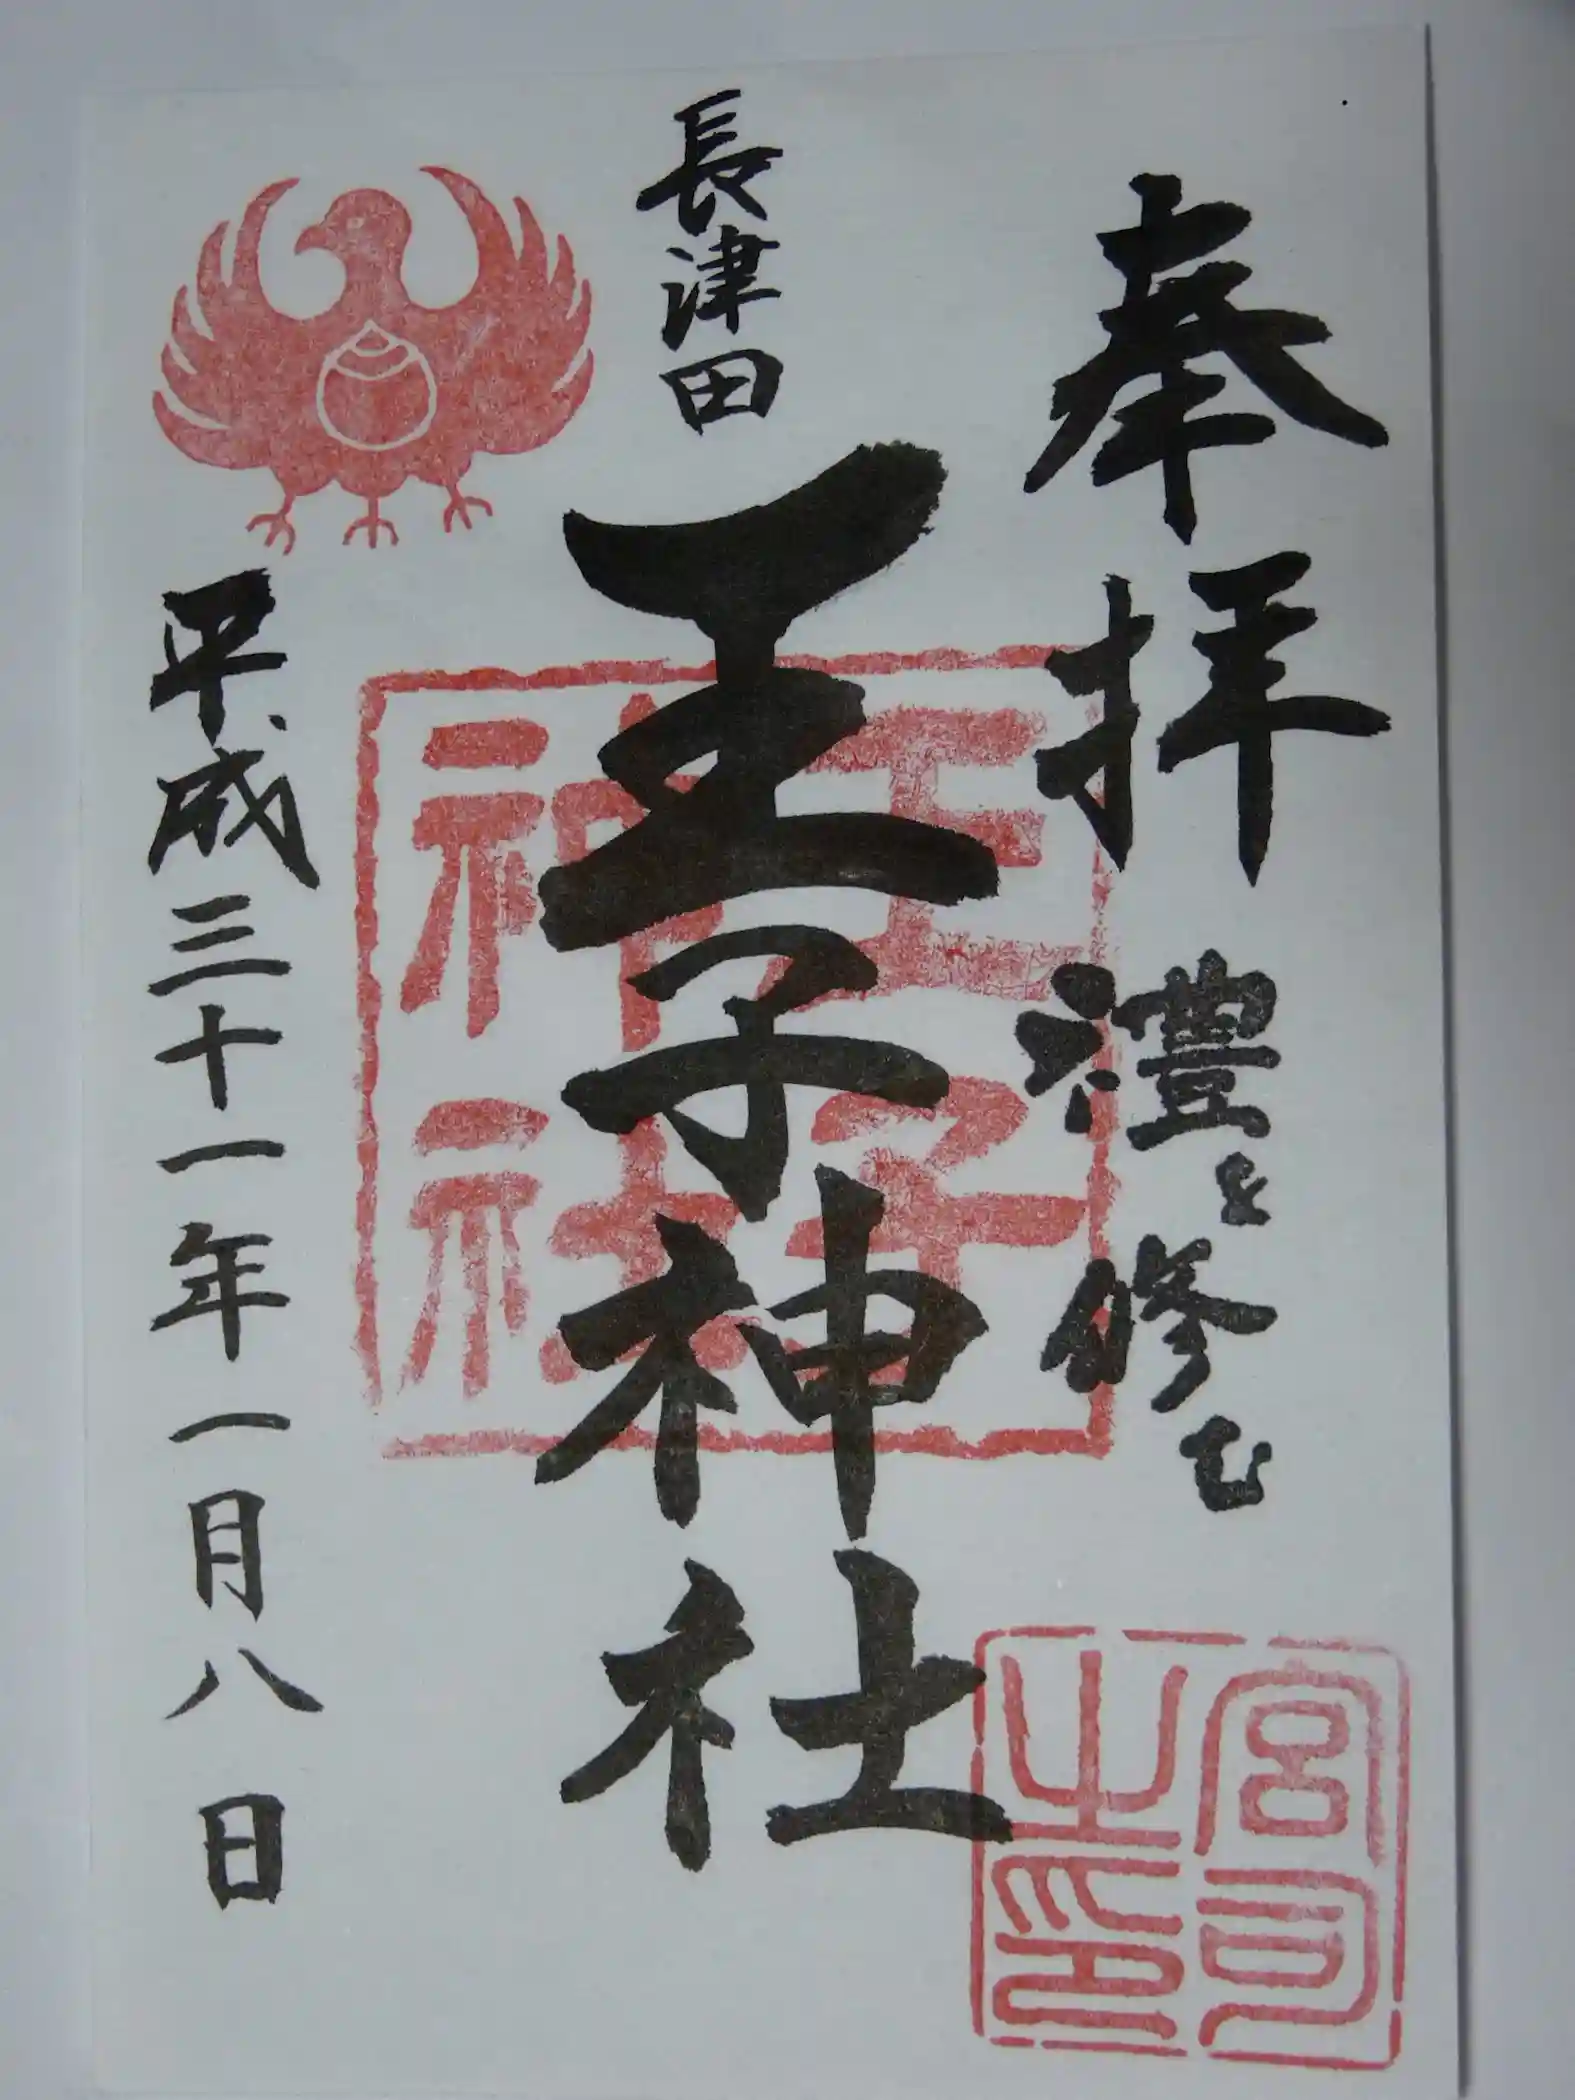 奉拝
禮を修む
長津田
王子神社
平成三十一年一月八日
王子
神社
宮司
之印